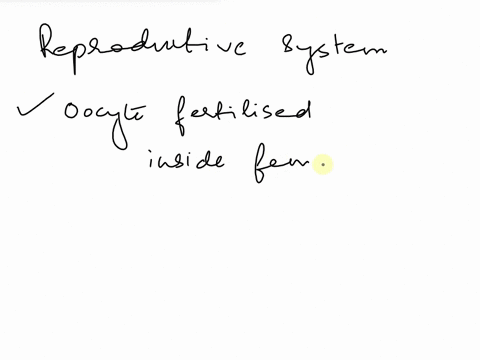 Reproductive system
✓ Oocyte fertilised
inside fem